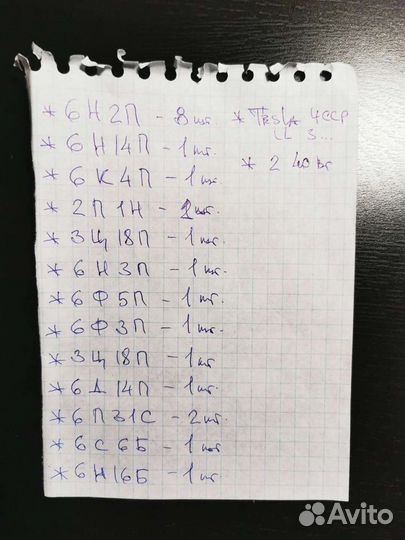 * 6Н2П - 8 шт.
* 6Н14П - 1 шт.
* 6К4П - 1 шт
* 2П1Н - 2 шт.
* 3Ц18П - 1 шт
* 6Н3П - 1 шт.
* 6Ф5П - 1 шт.
* 6Ф3П - 1 шт.
* 3Ц18П - 1 шт
* 6Д14П - 1 шт.
* 6П31С - 2 шт.
* 6С6Б - 1 шт
* 6Н16Б - 1 шт.
* Tesla ЧССР
LL 3...
* 2
Avito